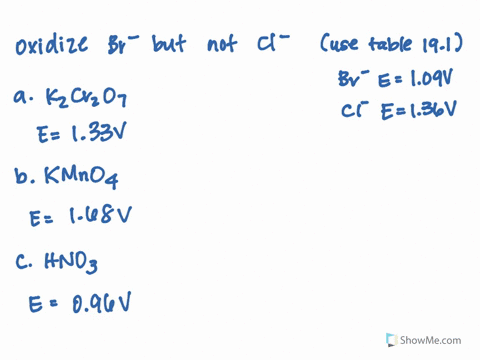 oxidize Br⁻ but not Cl⁻ (use table 19.1)
Br⁻ E = 1.09V
Cl⁻ E = 1.36V
a. K₂Cr₂O₇
E = 1.33V
b. KMnO₄
E = 1.68V
c. HNO₃
E = 0.96V
ShowMe.com